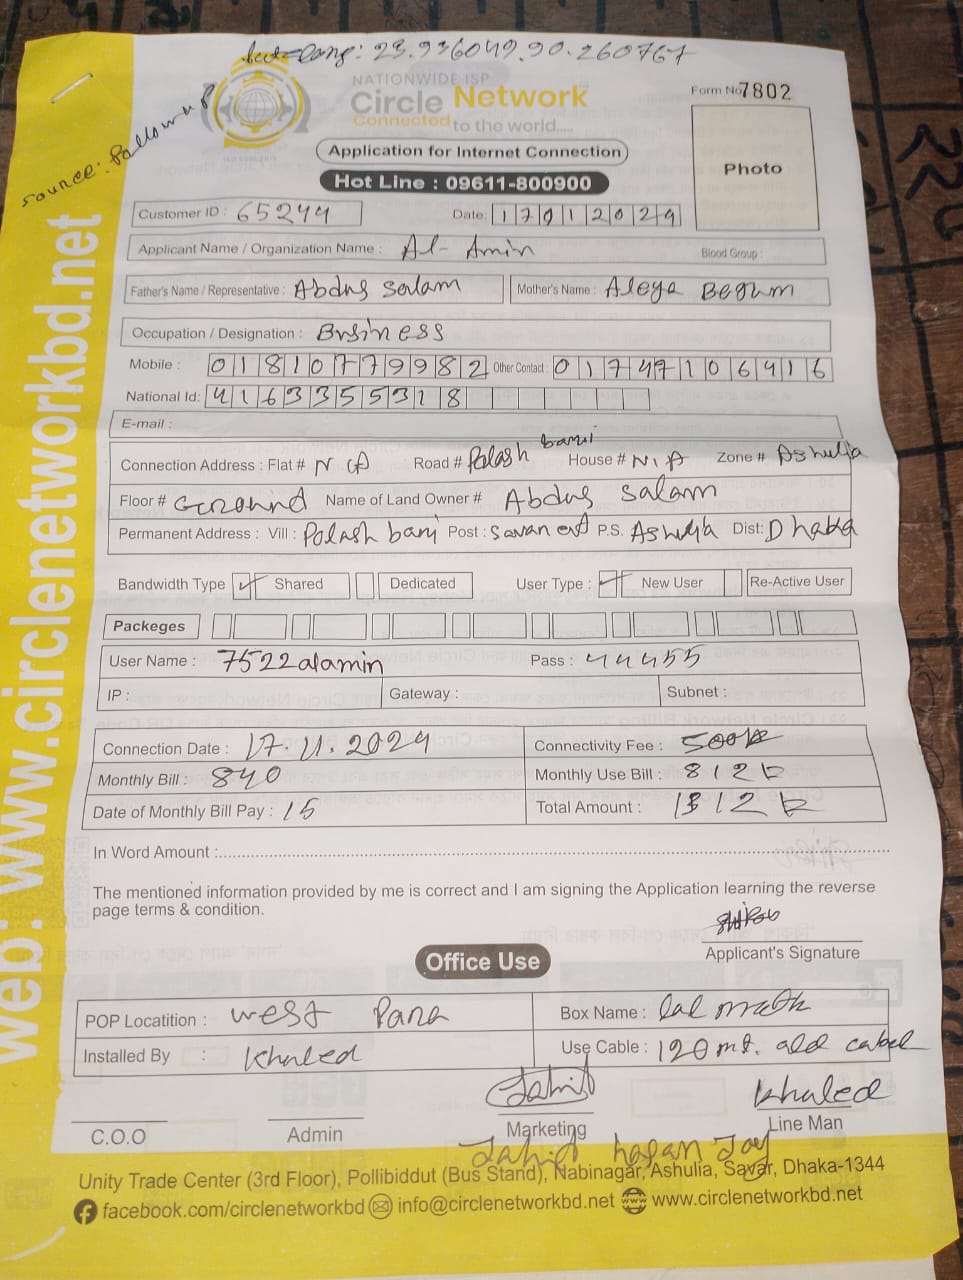 Lat=Long: 23.936049.90.260767
source: Pallowup
NATIONWIDE ISP
Circle Network
Connected to the world.....
Form No 7802
Photo
Application for Internet Connection
Hot Line : 09611-800900
Customer ID : 65244 Date: 17012024
Applicant Name / Organization Name : Al-Amin Blood Group :
Father's Name / Representative : Abdus Salam Mother's Name : Aleya Begum
Occupation / Designation : Business
Mobile : 01810779982 Other Contact : 01747106416
National Id: 4163355318
E-mail :
Connection Address : Flat # N/A Road # Palash bari House # N/A Zone # Ashulia
Floor # Ground Name of Land Owner # Abdus Salam
Permanent Address : Vill : Palash bari Post : Savar P.S. Ashulia Dist: Dhaka
Bandwidth Type ✓ Shared Dedicated User Type : ✓ New User Re-Active User
Packeges
User Name : 7522alamin Pass : 44455
IP : Gateway : Subnet :
Connection Date : 17.11.2024 Connectivity Fee : 500
Monthly Bill : 840 Monthly Use Bill : 812
Date of Monthly Bill Pay : 15 Total Amount : 1312
In Word Amount :
The mentioned information provided by me is correct and I am signing the Application learning the reverse
page terms & condition.
Applicant's Signature
Office Use
POP Locatition : west Para Box Name : lal math
Installed By : Khaled Use Cable : 120 mt. old cabel
Jahid Khaled
C.O.O Admin Marketing Line Man
Jahid hasan Joy
Unity Trade Center (3rd Floor), Pollibiddut (Bus Stand), Nabinagar, Ashulia, Savar, Dhaka-1344
facebook.com/circlenetworkbd info@circlenetworkbd.net www.circlenetworkbd.net
web: www.circlenetworkbd.net